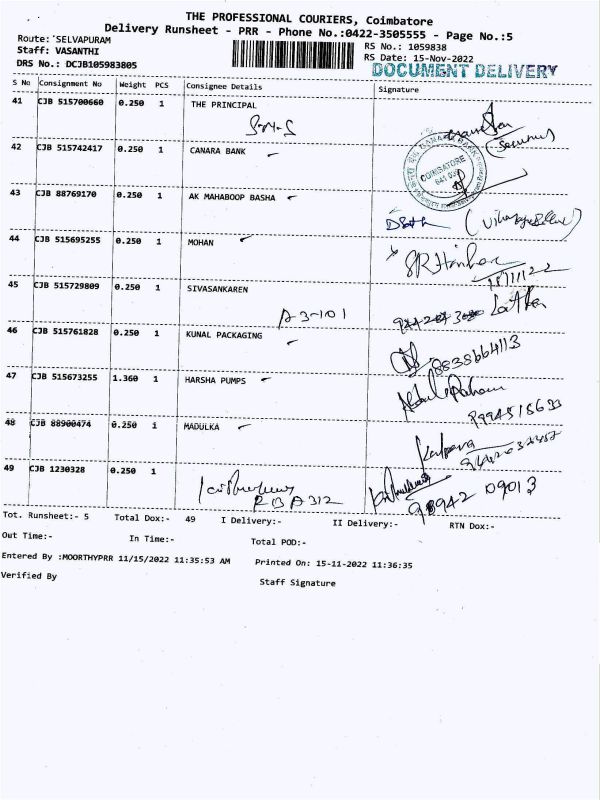 THE PROFESSIONAL COURIERS, Coimbatore
Delivery Runsheet - PRR - Phone No.:0422-3505555 - Page No.:5
Route: SELVAPURAM
RS No.: 1059838
Staff: VASANTHI
RS Date: 15-Nov-2022
DRS No.: DCJB105983805
DOCUMENT DELIVERY
S No Consignment No Weight PCS Consignee Details Signature
41 CJB 515700660 0.250 1 THE PRINCIPAL
42 CJB 515742417 0.250 1 CANARA BANK
COIMBATORE
43 CJB 88769170 0.250 1 AK MAHABOOP BASHA
44 CJB 515695255 0.250 1 MOHAN
45 CJB 515729809 0.250 1 SIVASANKAREN
A3-101
46 CJB 515761828 0.250 1 KUNAL PACKAGING
8838664113
47 CJB 515673255 1.360 1 HARSHA PUMPS
48 CJB 88900474 0.250 1 MADULKA
Kalpana
49 CJB 1230328 0.250 1
98942 09013
Tot. Runsheet:- 5 Total Dox:- 49 I Delivery:- II Delivery:- RTN Dox:-
Out Time:- In Time:- Total POD:-
Entered By :MOORTHYPRR 11/15/2022 11:35:53 AM Printed On: 15-11-2022 11:36:35
Verified By Staff Signature